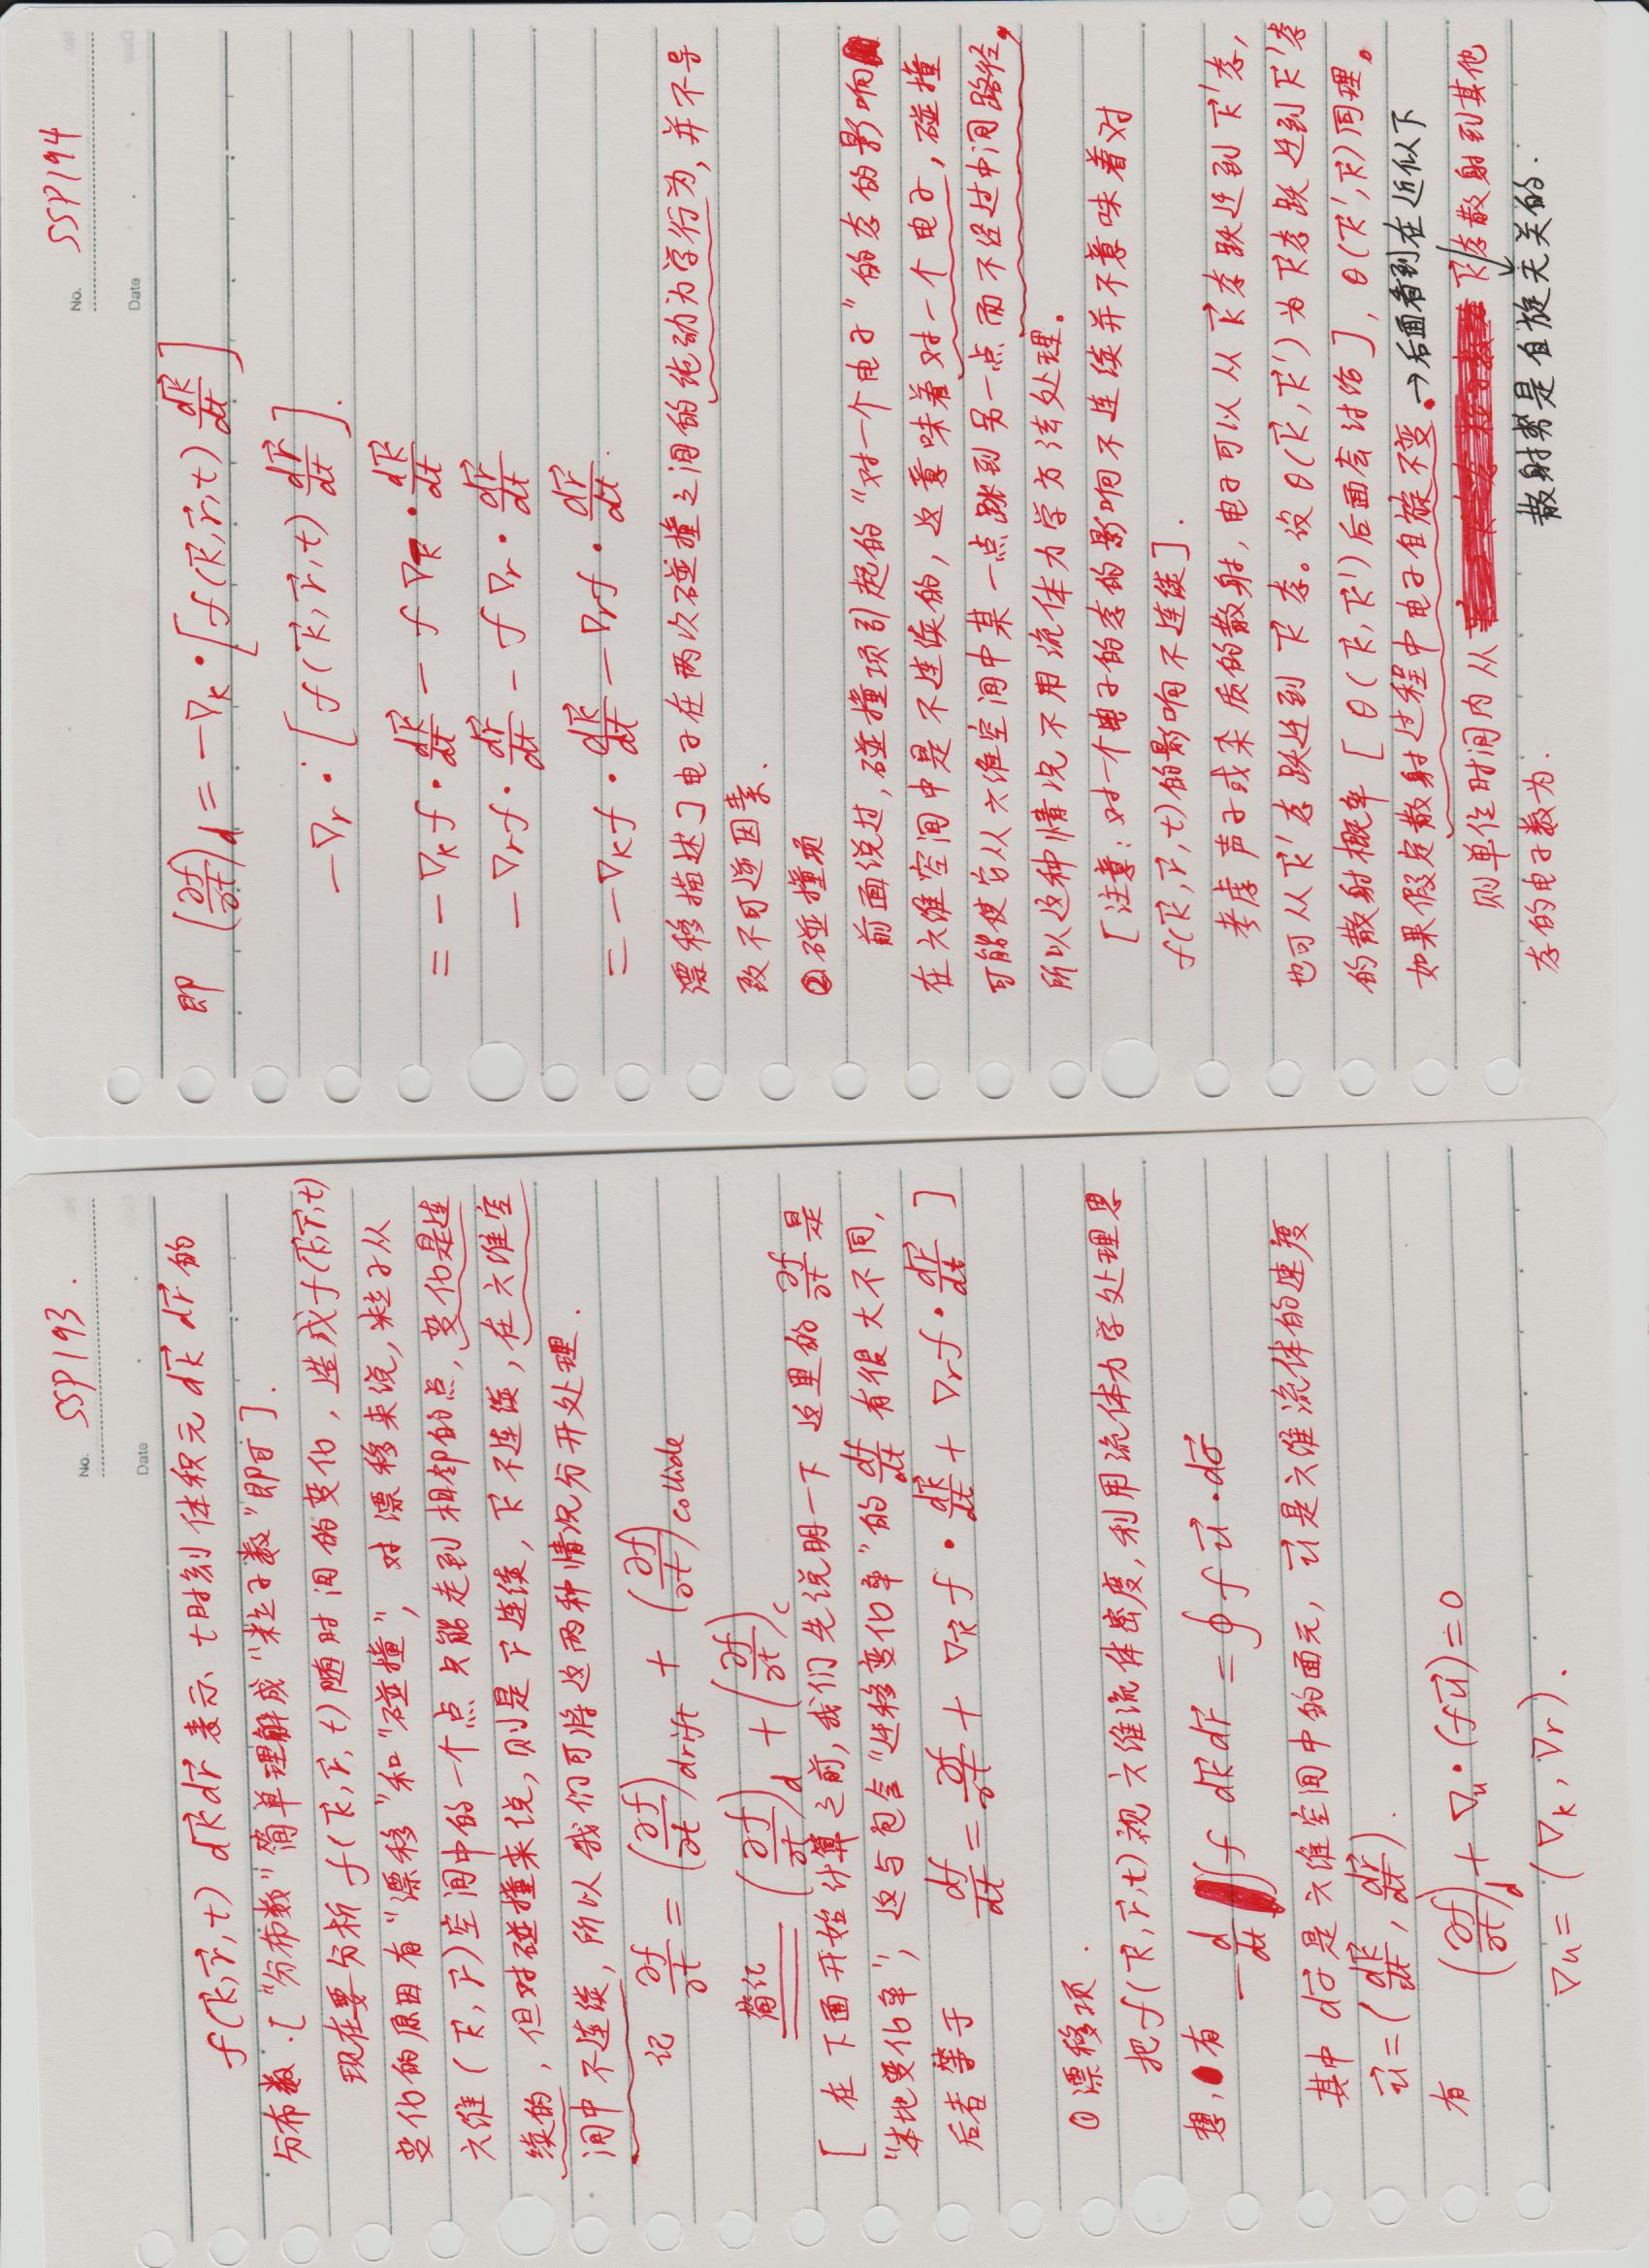 No. SSP193.
Date
f(k⃗,r⃗,t) dk⃗dr⃗ 表示 t时刻 体积元 dk⃗ dr⃗ 的
分布数.["分布数"简单理解成"粒子数"即可].
现在要分析 f(k⃗,r⃗,t)随时间的变化,造成f(k⃗,r⃗,t)
变化的原因有"漂移"和"碰撞",对漂移来说,粒子从
六维(k⃗,r⃗)空间中的一个点只能走到相邻的点,变化是连
续的,但对碰撞来说,则是r⃗连续,k⃗不连续,在六维空
间中不连续,所以我们可将这两种情况分开处理.
记 ∂f/∂t = (∂f/∂t)drift + (∂f/∂t)collide
简记 (∂f/∂t)d + (∂f/∂t)c
[ 在下面开始计算之前,我们先说明一下 这里的 ∂f/∂t 是
"本地变化率",这与包含"迁移变化率"的 df/dt 有很大不同,
后者等于 df/dt = ∂f/∂t + ∇k⃗ f · dk⃗/dt + ∇r f · dr⃗/dt ]
① 漂移项.
把f(k⃗,r⃗,t)视六维流体密度,利用流体力学处理思
想,有 -d/dt ∫f dk⃗dr⃗ = ∮ f u⃗·dσ⃗
其中 dσ⃗是六维空间中的面元,u⃗是六维流体的速度
u⃗=(dk⃗/dt, dr⃗/dt).
有 (∂f/∂t)d + ∇u·(fu⃗)=0
∇u = (∇k, ∇r).
No. SSP194
Date
即 (∂f/∂t)d = -∇k·[f(k⃗,r⃗,t) dk⃗/dt]
-∇r·[f(k⃗,r⃗,t) dr⃗/dt].
= -∇k f·dk⃗/dt - f ∇k·dk⃗/dt
-∇r f·dr⃗/dt - f ∇r·dr⃗/dt
= -∇k f·dk⃗/dt - ∇r f·dr⃗/dt.
漂移描述了电子在两次碰撞之间的纯动力学行为,并不导
致不可逆因素.
② 碰撞项
前面说过,碰撞项引起的"对一个电子"的态的影响
在六维空间中是不连续的,这意味着对一个电子,碰撞
可能使它从六维空间中某一点跳到另一点而不经过中间路径,
所以这种情况不用流体力学方法处理。
[注意:对一个电子的态的影响不连续并不意味着对
f(k⃗,r⃗,t)的影响不连续].
考虑声子或杂质的散射,电子可以从k⃗态跃迁到k⃗′态,
也可从k⃗′态跃迁到k⃗态。设θ(k⃗,k⃗′)为k⃗态跃迁到k⃗′态
的散射概率[θ(k⃗,k⃗′)后面会讨论],θ(k⃗′,k⃗)同理。
如果假定散射过程中电子自旋不变.→后面看到在近似下
则单位时间内从 k⃗态散射到其他
态的电子数为. 散射势是自旋无关的.